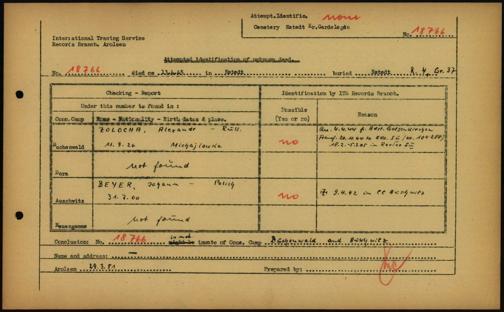 Attempt.Identific. none
Cemetery Estedt Kr.Gardelegen
International Tracing Service
Records Branch, Arolsen
No. 18766
Attempted identification of unknown dead.
No. 18766 died on in Estedt buried Estedt R. 4, Gr. 37
Checking - Report
Identification by ITS Records Branch.
Under this number is found in:
Possible
(Yes or no)
Reason
Conc.Camp
Name - Nationality - Birth dates & place.
ZOLOCHA, Alexander - Russ.
Buchenwald 11.9.26 Michajlowka
no
not found
Dora
BEYER, Johann - Polish
Auschwitz
31.7.00
no
+ 9.4.42 in CC Auschwitz
not found
Neuengamme
Conclusion: No. 18766 is not inmate of Conc. Camp Buchenwald and Auschwitz
Name and address: —
Arolsen 29.3.51 Prepared by: